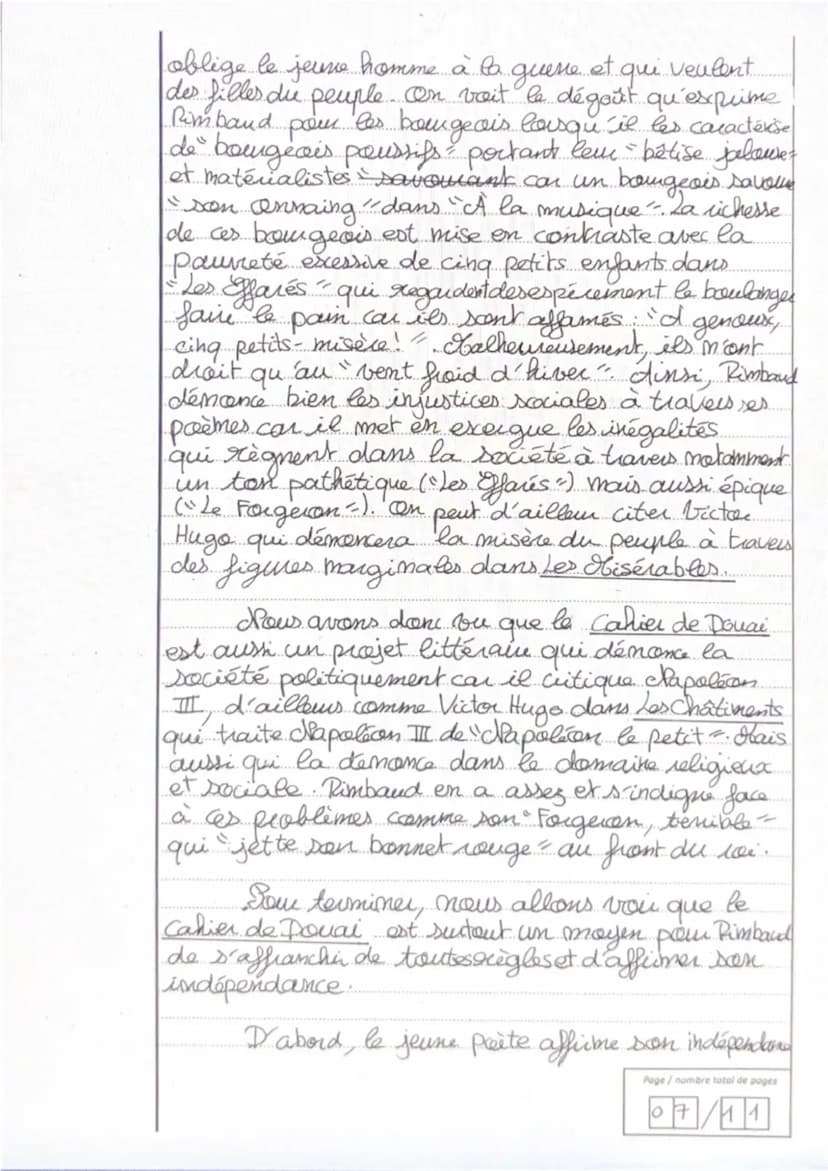 oblige le jeune homme à la guerre et qui veulent
des filles du peuple. On voit le dégoût qu'exprime
Rimbaud pour les bourgeois lorsqu'il les caractérise
de "bourgeois poussifs" portant leur "bêtise jalouse"
et matérialistes savourant car un bourgeois savoure
"son onnaing" dans "À la musique". La richesse
de ces bourgeois est mise en contraste avec la
pauvreté excessive de cinq petits enfants dans
"Les Effarés" qui regardent desespérement le boulanger
faire le pain car ils sont affamés : "A genoux,
cinq petits - misère!". Malheureusement, ils n'ont
droit qu'au "vent froid d'hiver". Ainsi, Rimbaud
dénonce bien les injustices sociales à travers ses
poèmes car il met en exergue les inégalités
qui règnent dans la société à travers notamment
un ton pathétique ("Les Effarés") mais aussi épique
("Le Forgeron"). On peut d'ailleur citer Victor
Hugo qui dénoncera la misère du peuple à travers
des figures marginales dans Les Misérables.
Nous avons donc vu que le Cahier de Douai
est aussi un projet littéraire qui dénonce la
société politiquement car il critique Napoléon
III, d'ailleurs comme Victor Hugo dans Les Châtiments
qui traite Napoléon III de "Napoléon le petit". Mais
aussi qui la denonce dans le domaine religieux
et sociale. Rimbaud en a assez et s'indigne face
à ces problèmes comme son "Forgeron, terrible"
qui "jette son bonnet rouge" au front du roi.
Pour terminer, nous allons voir que le
Cahier de Douai est surtout un moyen pour Rimbaud
de s'affranchir de toutes règles et d'affirmer son
indépendance.
D'abord, le jeune poète affirme son indépendance
Page / nombre total de pages
07/11